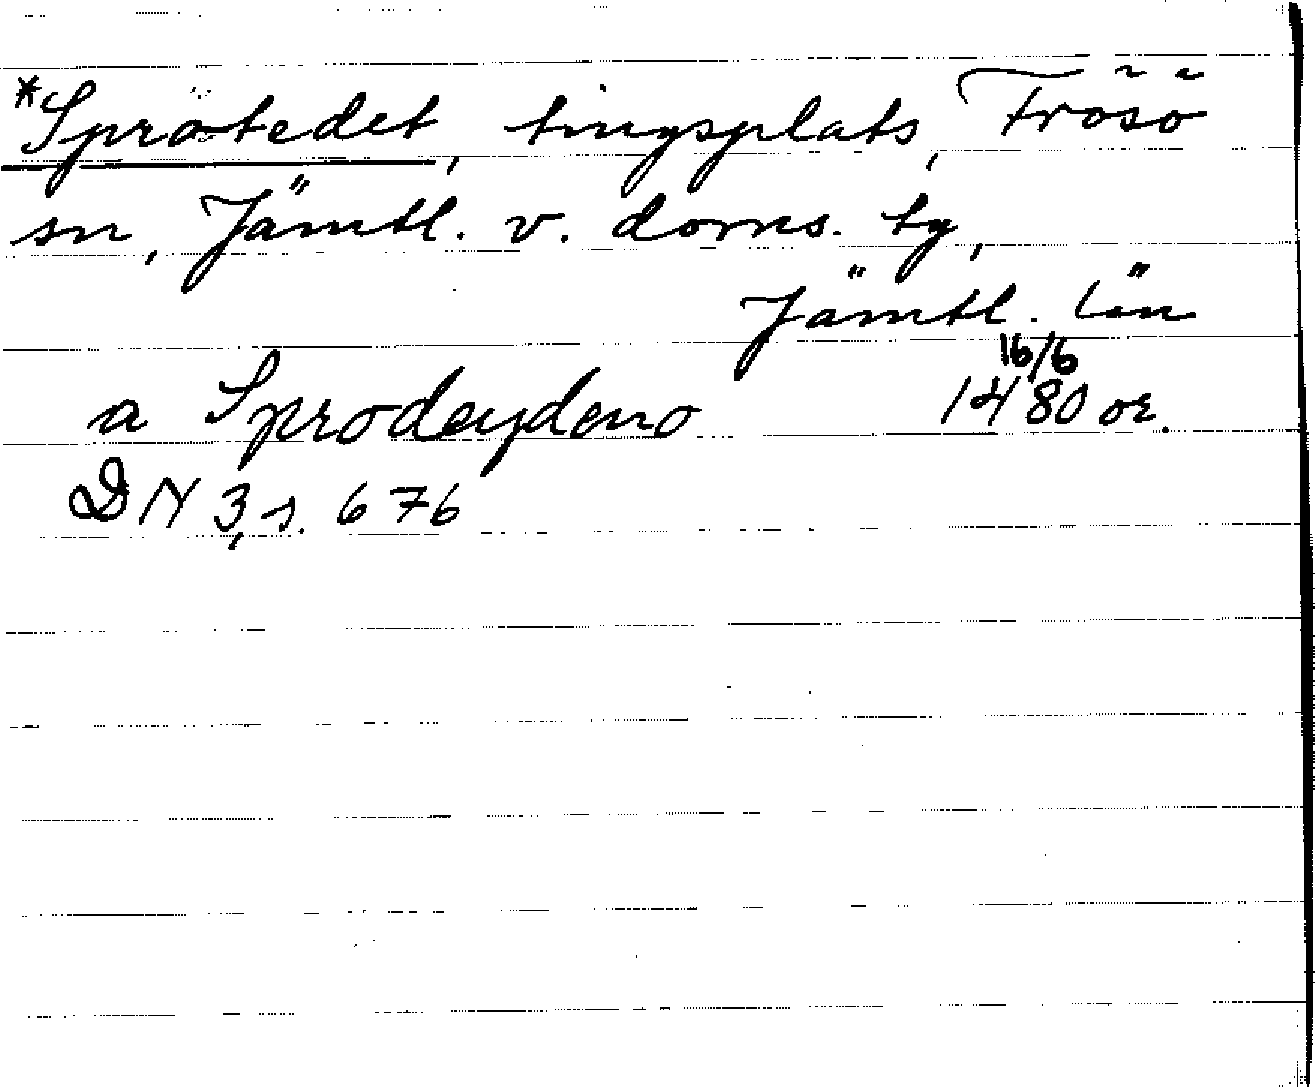 *Sprötedet, tingsplats, Frösö
sn, Jämtl. v. doms. tg,
Jämtl. län
16/6
a Sprodeydeno 1480 or.
DN 3, s. 676